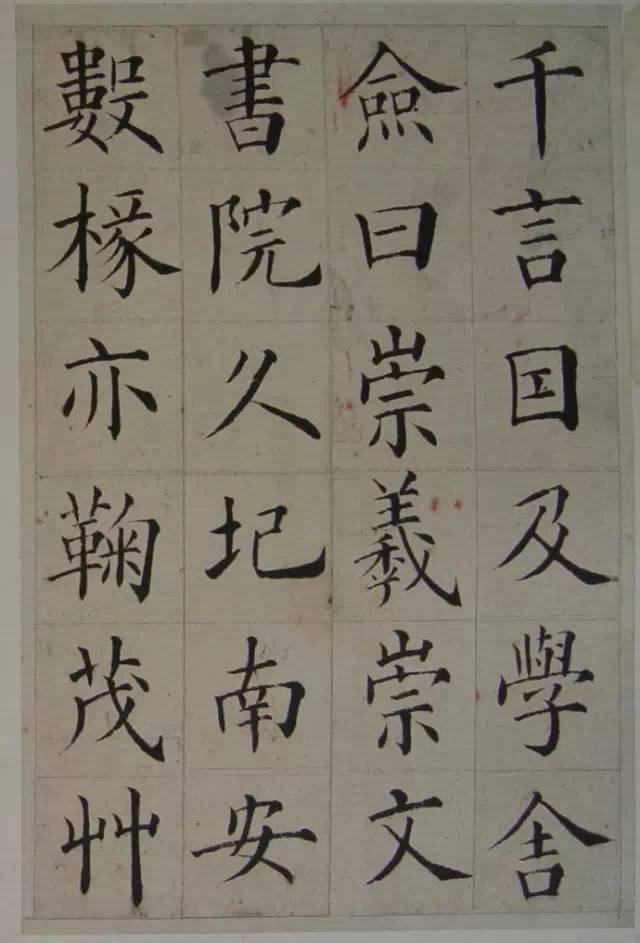 千言因及學舍
僉曰崇羲崇文
書院久圮南安
數椽亦鞠茂艸